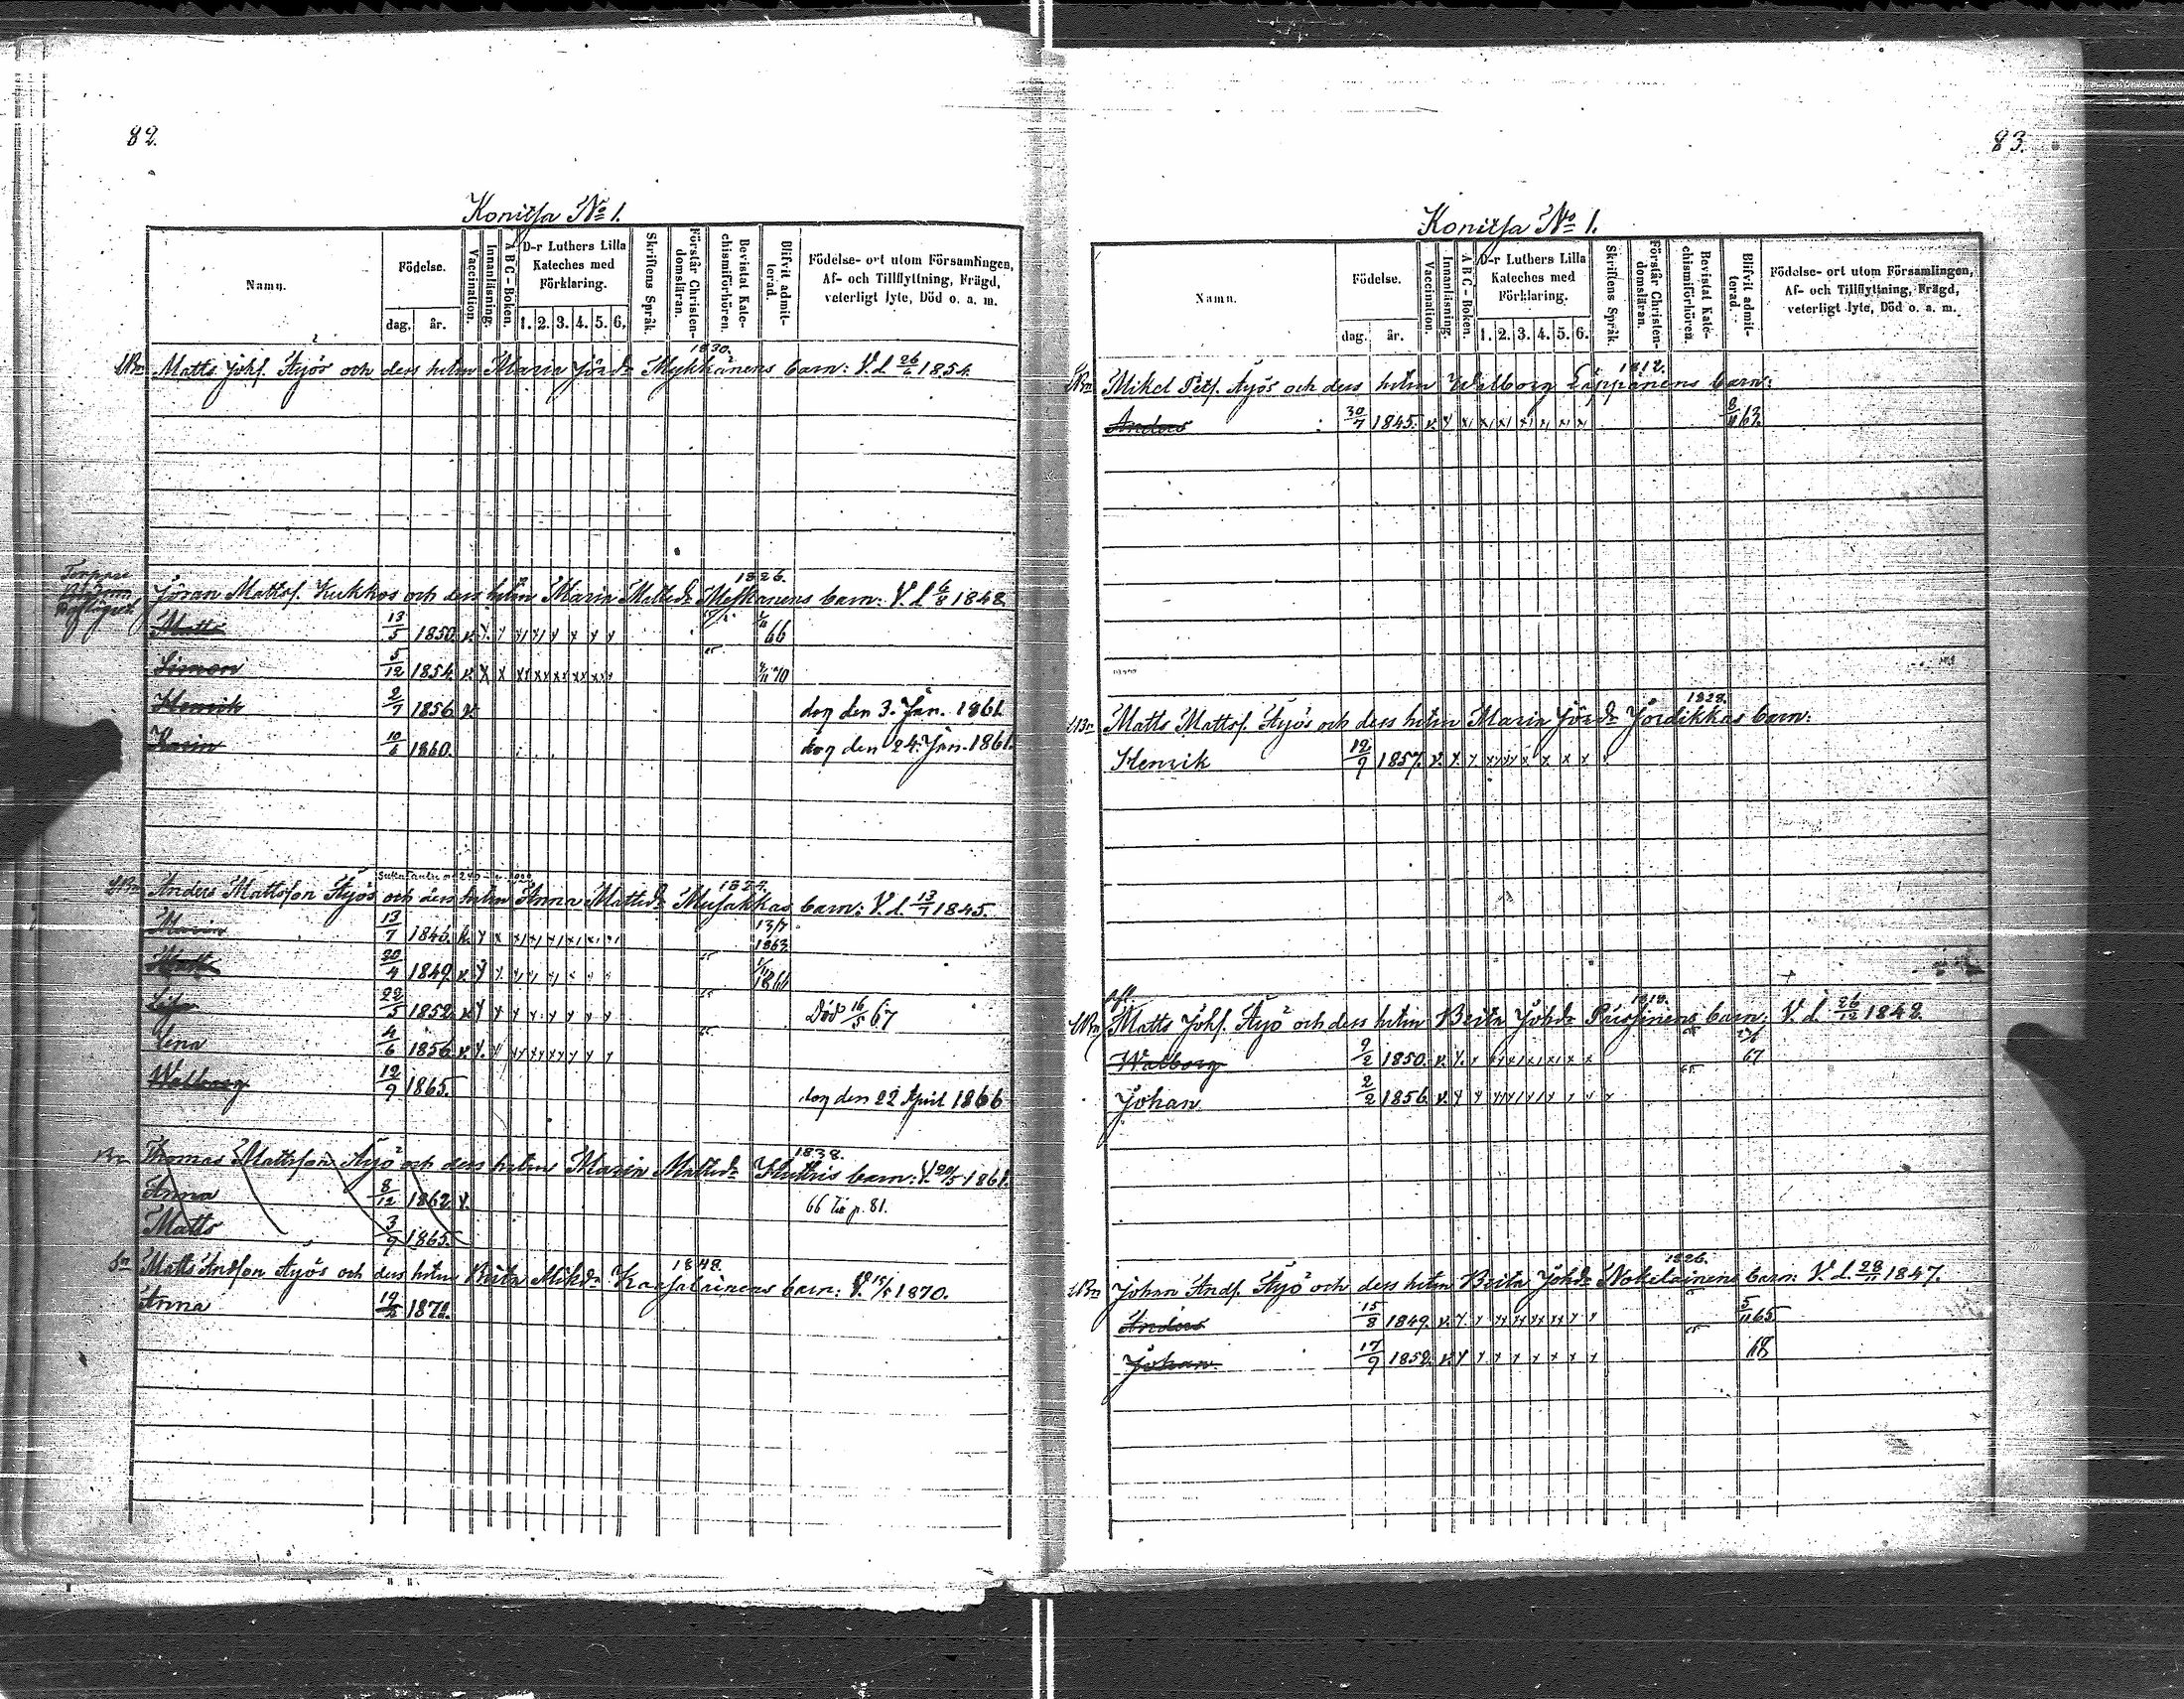 82.
Konitsa No 1.
Namn.
Födelse.
dag.
år.
Vaccination.
Innanläsning.
A B C - Boken.
D-r Luthers Lilla Kateches med Förklaring.
1. 2. 3. 4. 5. 6.
Skriftens Språk.
Förstår Christendomsläran.
Bevistat Katechismiförhören.
Blifvit admitterad.
Födelse- ort utom Församlingen, Af- och Tillflyttning, Frägd, veterligt lyte, Död o. a. m.
1830.
Matts Johs. Äyös och dess hstru Maria Jör.dr Mykkänens barn: V. d. 26/6 1854.
1826.
Jöran Matts. Kukkos och dess hstru Maria Matts.dr barn: V. d. 6/8 1848
Matts 13/5 1850. 66
Simon 5/12 1854. 70
Henrik 2/7 1856 dog den 3. Jan. 1861
Karin 10/6 1860. dog den 24. Jan. 1861.
1824.
Anders Mattsson Äyös och dess hstru Anna Matts.dr Musakkas barn: V. d. 13/7 1845.
Maria 13/7 1846. 13/7 1863
Matts 20/4 1849.
22/5 1852. Död 16/5 67
Lena 4/6 1856
Walborg 12/9 1865. dog den 22 April 1866
1838.
Thomas Mattsson Äyö och dess hstru Maria Matts.dr barn: V. 20/5 1861.
Anna 8/12 1862. 66 p. 81.
Matts 3/9 1865.
1848.
Matts Andsson Äyös och dess hstru Brita Mik.dr Karjalainens barn: 1870.
Anna
83.
Konitsa No 1.
Namn.
Födelse.
dag.
år.
Vaccination.
Innanläsning.
A B C - Boken.
D-r Luthers Lilla Kateches med Förklaring.
1. 2. 3. 4. 5. 6.
Skriftens Språk.
Förstår Christendomsläran.
Bevistat Katechismiförhören.
Blifvit admitterad.
Födelse- ort utom Församlingen, Af- och Tillflyttning, Frägd, veterligt lyte, Död o. a. m.
1812.
Mikel Pets. Äyös och dess hstru Walborg Läppänens barn:
Anders 30/7 1845. 8/11 63.
1828.
Matts Matts. Äyös och dess hstru Maria Jör.dr Jördikkas barn:
Henrik 12/9 1857.
Matts Johs. Äyö och dess hstru Brita Joh.dr barn: V. d. 26/12 1842.
Walborg 9/2 1850. 67
Johan 2/2 1856
1826.
Johan Ands. Äyö och dess hstru Brita Joh.dr Nokelainens barn: V. d. 28/11 1847.
Anders 15/8 1849. 5/11 65
Johan 17/9 1852. 68